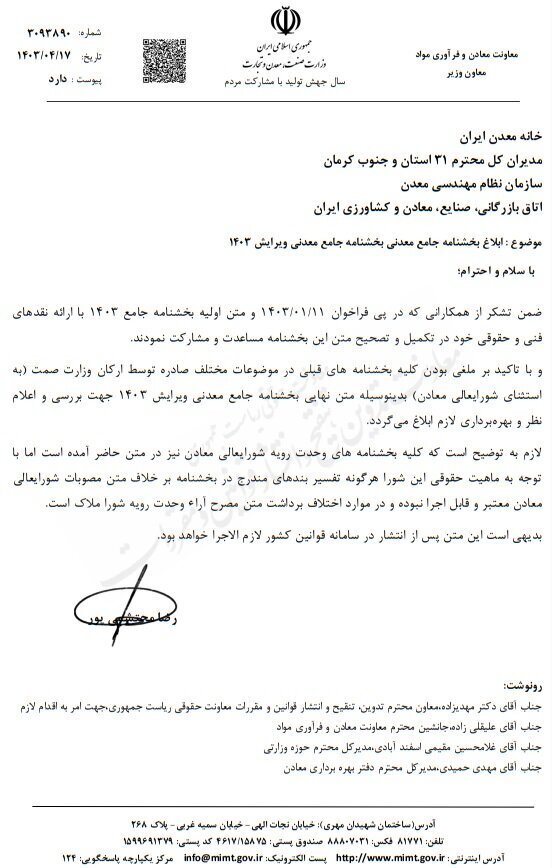 شماره: ۳۰۹۳۸۹۰
تاریخ: ۱۴۰۳/۰۴/۱۷
پیوست: دارد
جمهوری اسلامی ایران
وزارت صنعت، معدن و تجارت
سال جهش تولید با مشارکت مردم
معاونت معادن و فرآوری مواد
معاون وزیر
خانه معدن ایران
مدیران کل محترم ۳۱ استان و جنوب کرمان
سازمان نظام مهندسی معدن
اتاق بازرگانی، صنایع، معادن و کشاورزی ایران
موضوع : ابلاغ بخشنامه جامع معدنی بخشنامه جامع معدنی ویرایش ۱۴۰۳
با سلام و احترام؛
ضمن تشکر از همکارانی که در پی فراخوان ۱۴۰۳/۰۱/۱۱ و متن اولیه بخشنامه جامع ۱۴۰۳ با ارائه نقدهای
فنی و حقوقی خود در تکمیل و تصحیح متن این بخشنامه مساعدت و مشارکت نمودند.
و با تاکید بر ملغی بودن کلیه بخشنامه های قبلی در موضوعات مختلف صادره توسط ارکان وزارت صمت (به
استثنای شورایعالی معادن) بدینوسیله متن نهایی بخشنامه جامع معدنی ویرایش ۱۴۰۳ جهت بررسی و اعلام
نظر و بهره‌برداری لازم ابلاغ می‌گردد.
لازم به توضیح است که کلیه بخشنامه های وحدت رویه شورایعالی معادن نیز در متن حاضر آمده است اما با
توجه به ماهیت حقوقی این شورا هرگونه تفسیر بندهای مندرج در بخشنامه بر خلاف متن مصوبات شورایعالی
معادن معتبر و قابل اجرا نبوده و در موارد اختلاف برداشت متن مصرح آراء وحدت رویه شورا ملاک است.
بدیهی است این متن پس از انتشار در سامانه قوانین کشور لازم الاجرا خواهد بود.
رضا محتشمی پور
رونوشت:
جناب آقای دکتر مهدیزاده،معاون محترم تدوین، تنقیح و انتشار قوانین و مقررات معاونت حقوقی ریاست جمهوری،جهت امر به اقدام لازم
جناب آقای علیقلی زاده،جانشین محترم معاونت معادن و فرآوری مواد
جناب آقای غلامحسین مقیمی اسفند آبادی،مدیرکل محترم حوزه وزارتی
جناب آقای مهدی حمیدی،مدیرکل محترم دفتر بهره برداری معادن
آدرس(ساختمان شهیدان مهری): خیابان نجات الهی - خیابان سمیه غربی - پلاک ۲۶۸
تلفن: ۸۱۷۷۱ فکس: ۸۸۸۰۷۰۳۱ صندوق پستی: ۴۶۱۷/۱۵۸۷۵ کد پستی: ۱۵۹۹۶۹۱۳۷۹
آدرس اینترنتی: http://www.mimt.gov.ir پست الکترونیک: info@mimt.gov.ir مرکز یکپارچه پاسخگویی: ۱۲۴